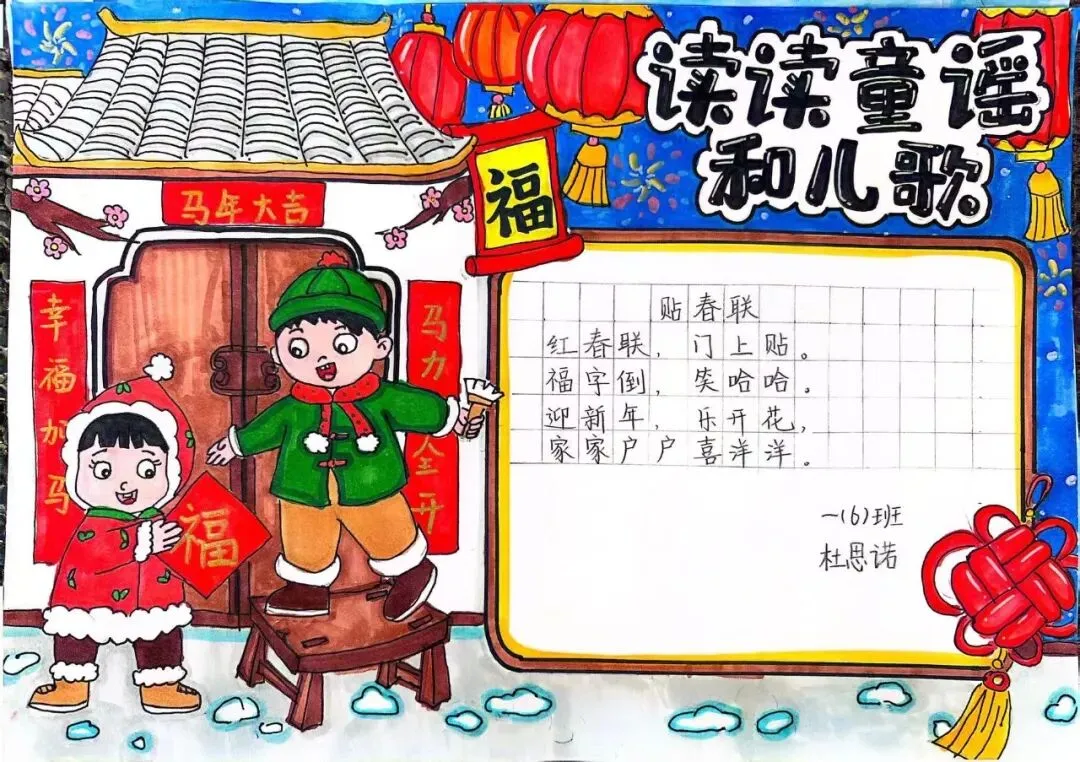 读读童谣
和儿歌
福
马年大吉
幸福加马
马力全开
福
贴春联
红春联，门上贴。
福字倒，笑哈哈。
迎新年，乐开花，
家家户户喜洋洋。
一(6)班
杜思诺